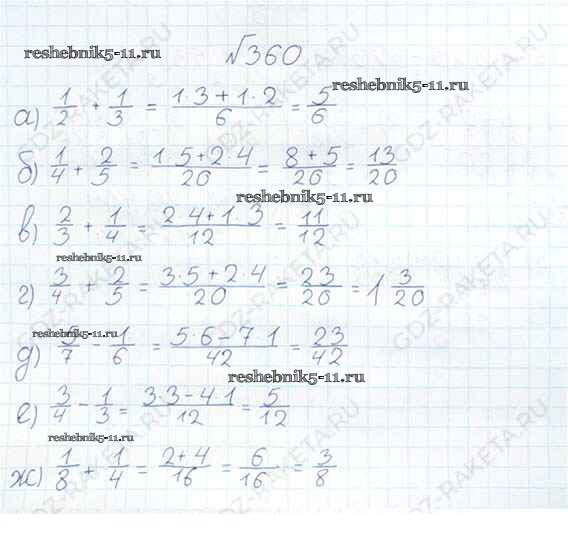 reshebnik5-11.ru
№360
reshebnik5-11.ru
а) 1/2 + 1/3 = (1·3+1·2)/6 = 5/6
б) 1/4 + 2/5 = (1·5+2·4)/20 = (8+5)/20 = 13/20
reshebnik5-11.ru
в) 2/3 + 1/4 = (2·4+1·3)/12 = 11/12
reshebnik5-11.ru
г) 3/4 + 2/5 = (3·5+2·4)/20 = 23/20 = 1 3/20
reshebnik5-11.ru
д) 5/7 - 1/6 = (5·6-7·1)/42 = 23/42
reshebnik5-11.ru
е) 3/4 - 1/3 = (3·3-4·1)/12 = 5/12
reshebnik5-11.ru
ж) 1/8 + 1/4 = (2+4)/16 = 6/16 = 3/8
GDZ-RAKETA.RU